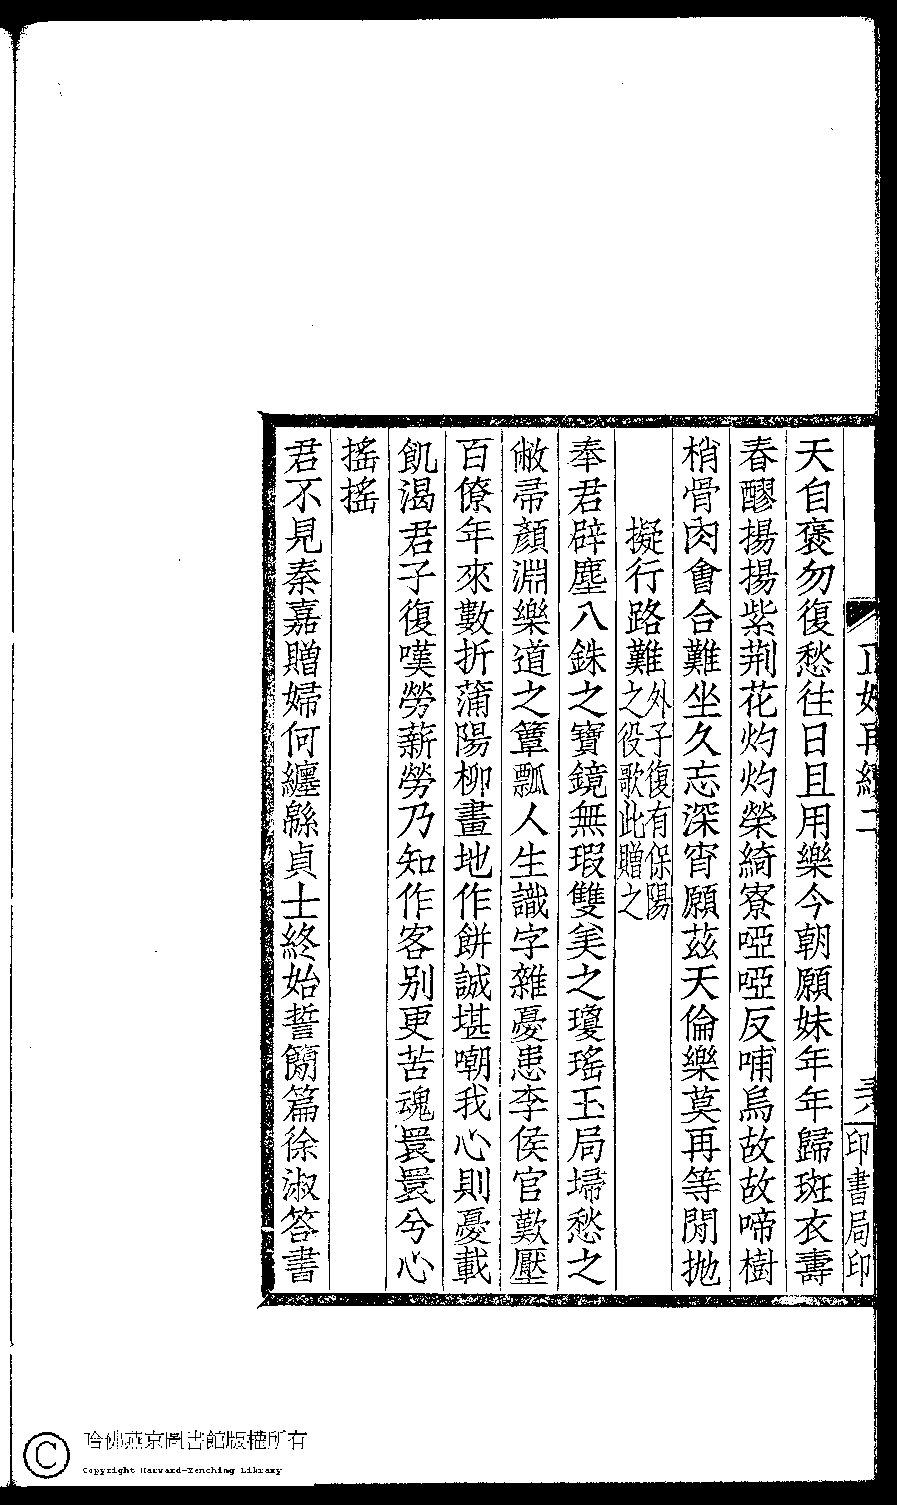 天自褒勿復愁往日且用樂今朝願妹年年歸斑衣壽
春醪揚揚紫荆花灼灼榮綺寮啞啞反哺烏故故啼樹
梢骨肉會合難坐久忘深宵願茲天倫樂莫再等閒抛
擬行路難外子復有保陽之役歌此贈之
奉君辟塵八銖之寶鏡無瑕雙矣之瓊瑤玉局埽愁之
敝帚顏淵樂道之簞瓢人生識字雜憂患李侯官歎壓
百僚年來數折蒲陽柳畫地作餅誠堪嘲我心則憂載
飢渴君子復嘆勞薪勞乃知作客别更苦魂睘睘兮心
搖搖
君不見秦嘉贈婦何纏緜貞士終始誓簡篇徐淑答書
再續二
印書局印
哈佛燕京圖書館版權所有
Copyright Harvard-Yenching Library